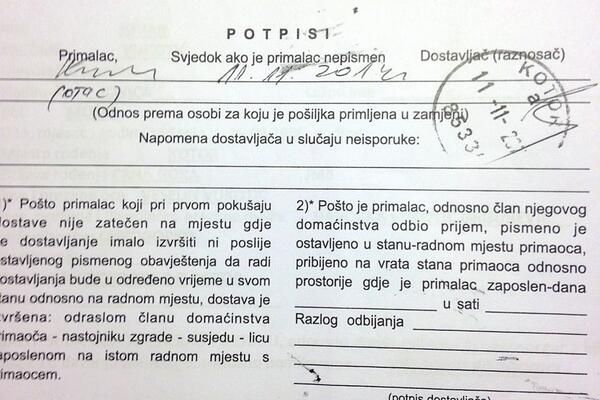 POTPISI
Primalac, Svjedok ako je primalac nepismen Dostavljač (raznosač)
11. 11. 2014
(OTAC)
KOTOR
a
11 -11- 
8533
(Odnos prema osobi za koju je pošiljka primljena u zamjeni)
Napomena dostavljača u slučaju neisporuke:
1)* Pošto primalac koji pri prvom pokušaju
dostave nije zatečen na mjestu gdje
se dostavljanje imalo izvršiti ni poslije
ostavljenog pismenog obavještenja da radi
dostavljanja bude u određeno vrijeme u svom
stanu odnosno na radnom mjestu, dostava je
izvršena: odraslom članu domaćinstva
primaoča - nastojniku zgrade - susjedu - licu
zaposlenom na istom radnom mjestu s
primaocem.
2)* Pošto je primalac, odnosno član njegovog
domaćinstva odbio prijem, pismeno je
ostavljeno u stanu-radnom mjestu primaoca,
pribijeno na vrata stana primaoca odnosno
prostorije gdje je primalac zaposlen-dana
u sati
Razlog odbijanja
(potpis dostavljača)